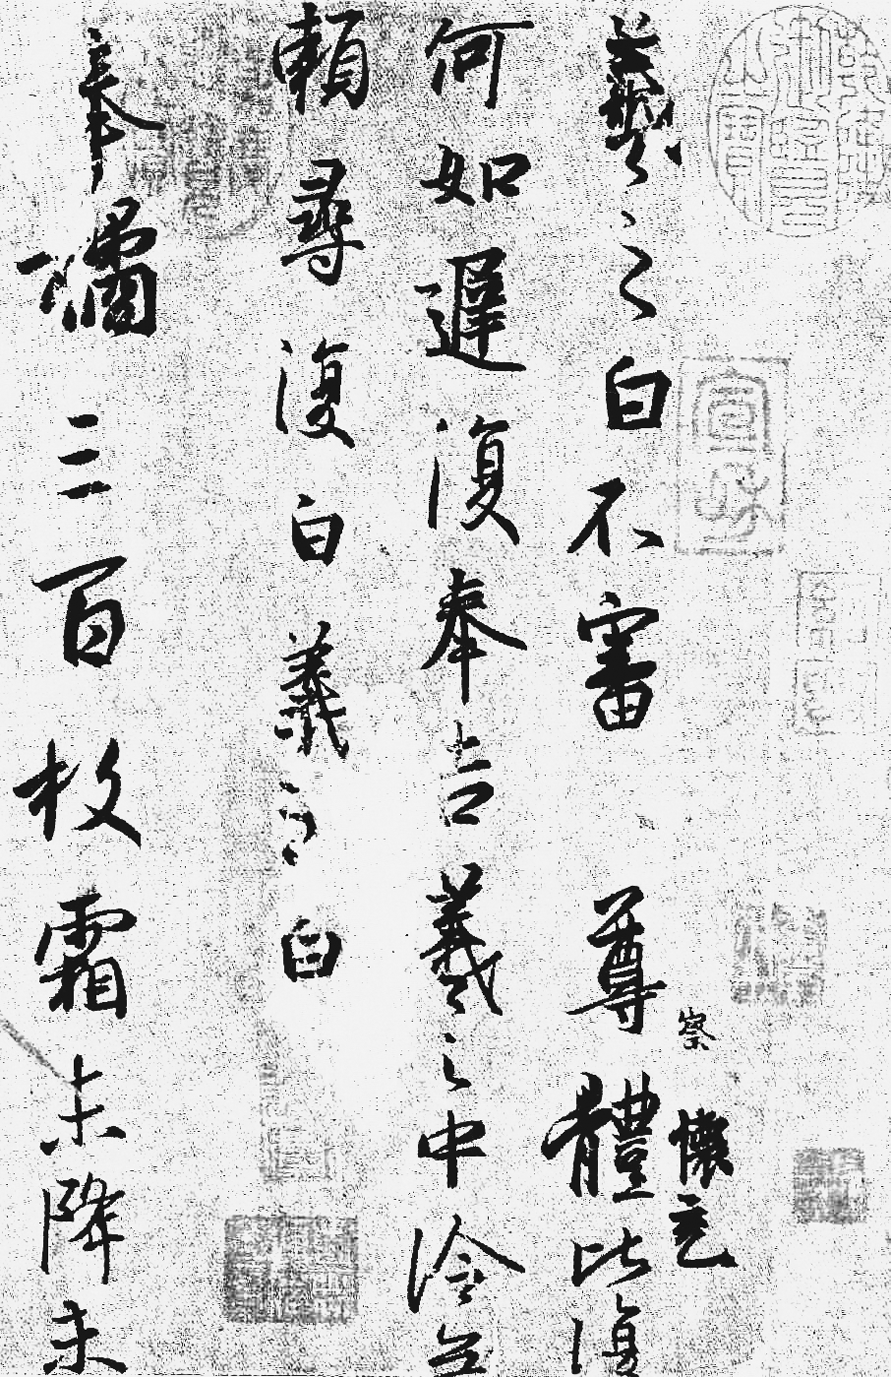 羲之白不審 尊體比復
何如遲復奉告羲之中冷無
賴尋復白羲之白
奉橘三百枚霜未降未
察
懷充
宣和